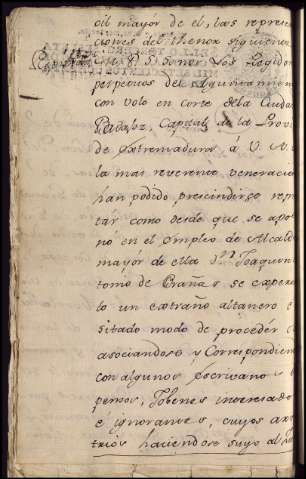 cil mayor de el, las represen
ciones del thenor siguiente
Señor Los Regido
perpetuos del Ayuntamien
con voto en corte de la Ciuda
Badajoz, Capital de la Provi
de extremadura, a V.
la mas reverente veneracio
han podido prescindirse, rep
tar como desde que se apos
no en el empleo de Alcald
mayor de ella Dn. Joaquin
tomo de Braña, se experi
to un extraño altanero e
sitado modo de proceder
asociandose y Correspondien
con algunos escrivanos
persos, Jobenes
é ignorantes, cuyos
trios haciendose suyo al